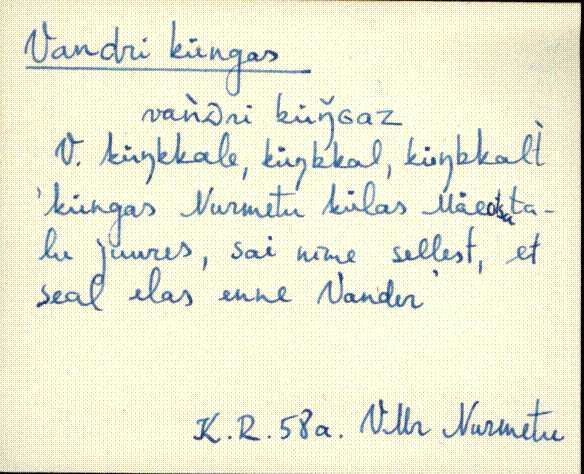 Vandri küngas
vaǹᴅri küŋ̆ɢaz
V. küŋkkale, küŋkkal, küŋkkal̀t
'küngas Nurmetu külas Mäeotsa ta-
lu juures, sai nime sellest, et
seal elas enne Vander'
K.R. 58a. VMr Nurmetu